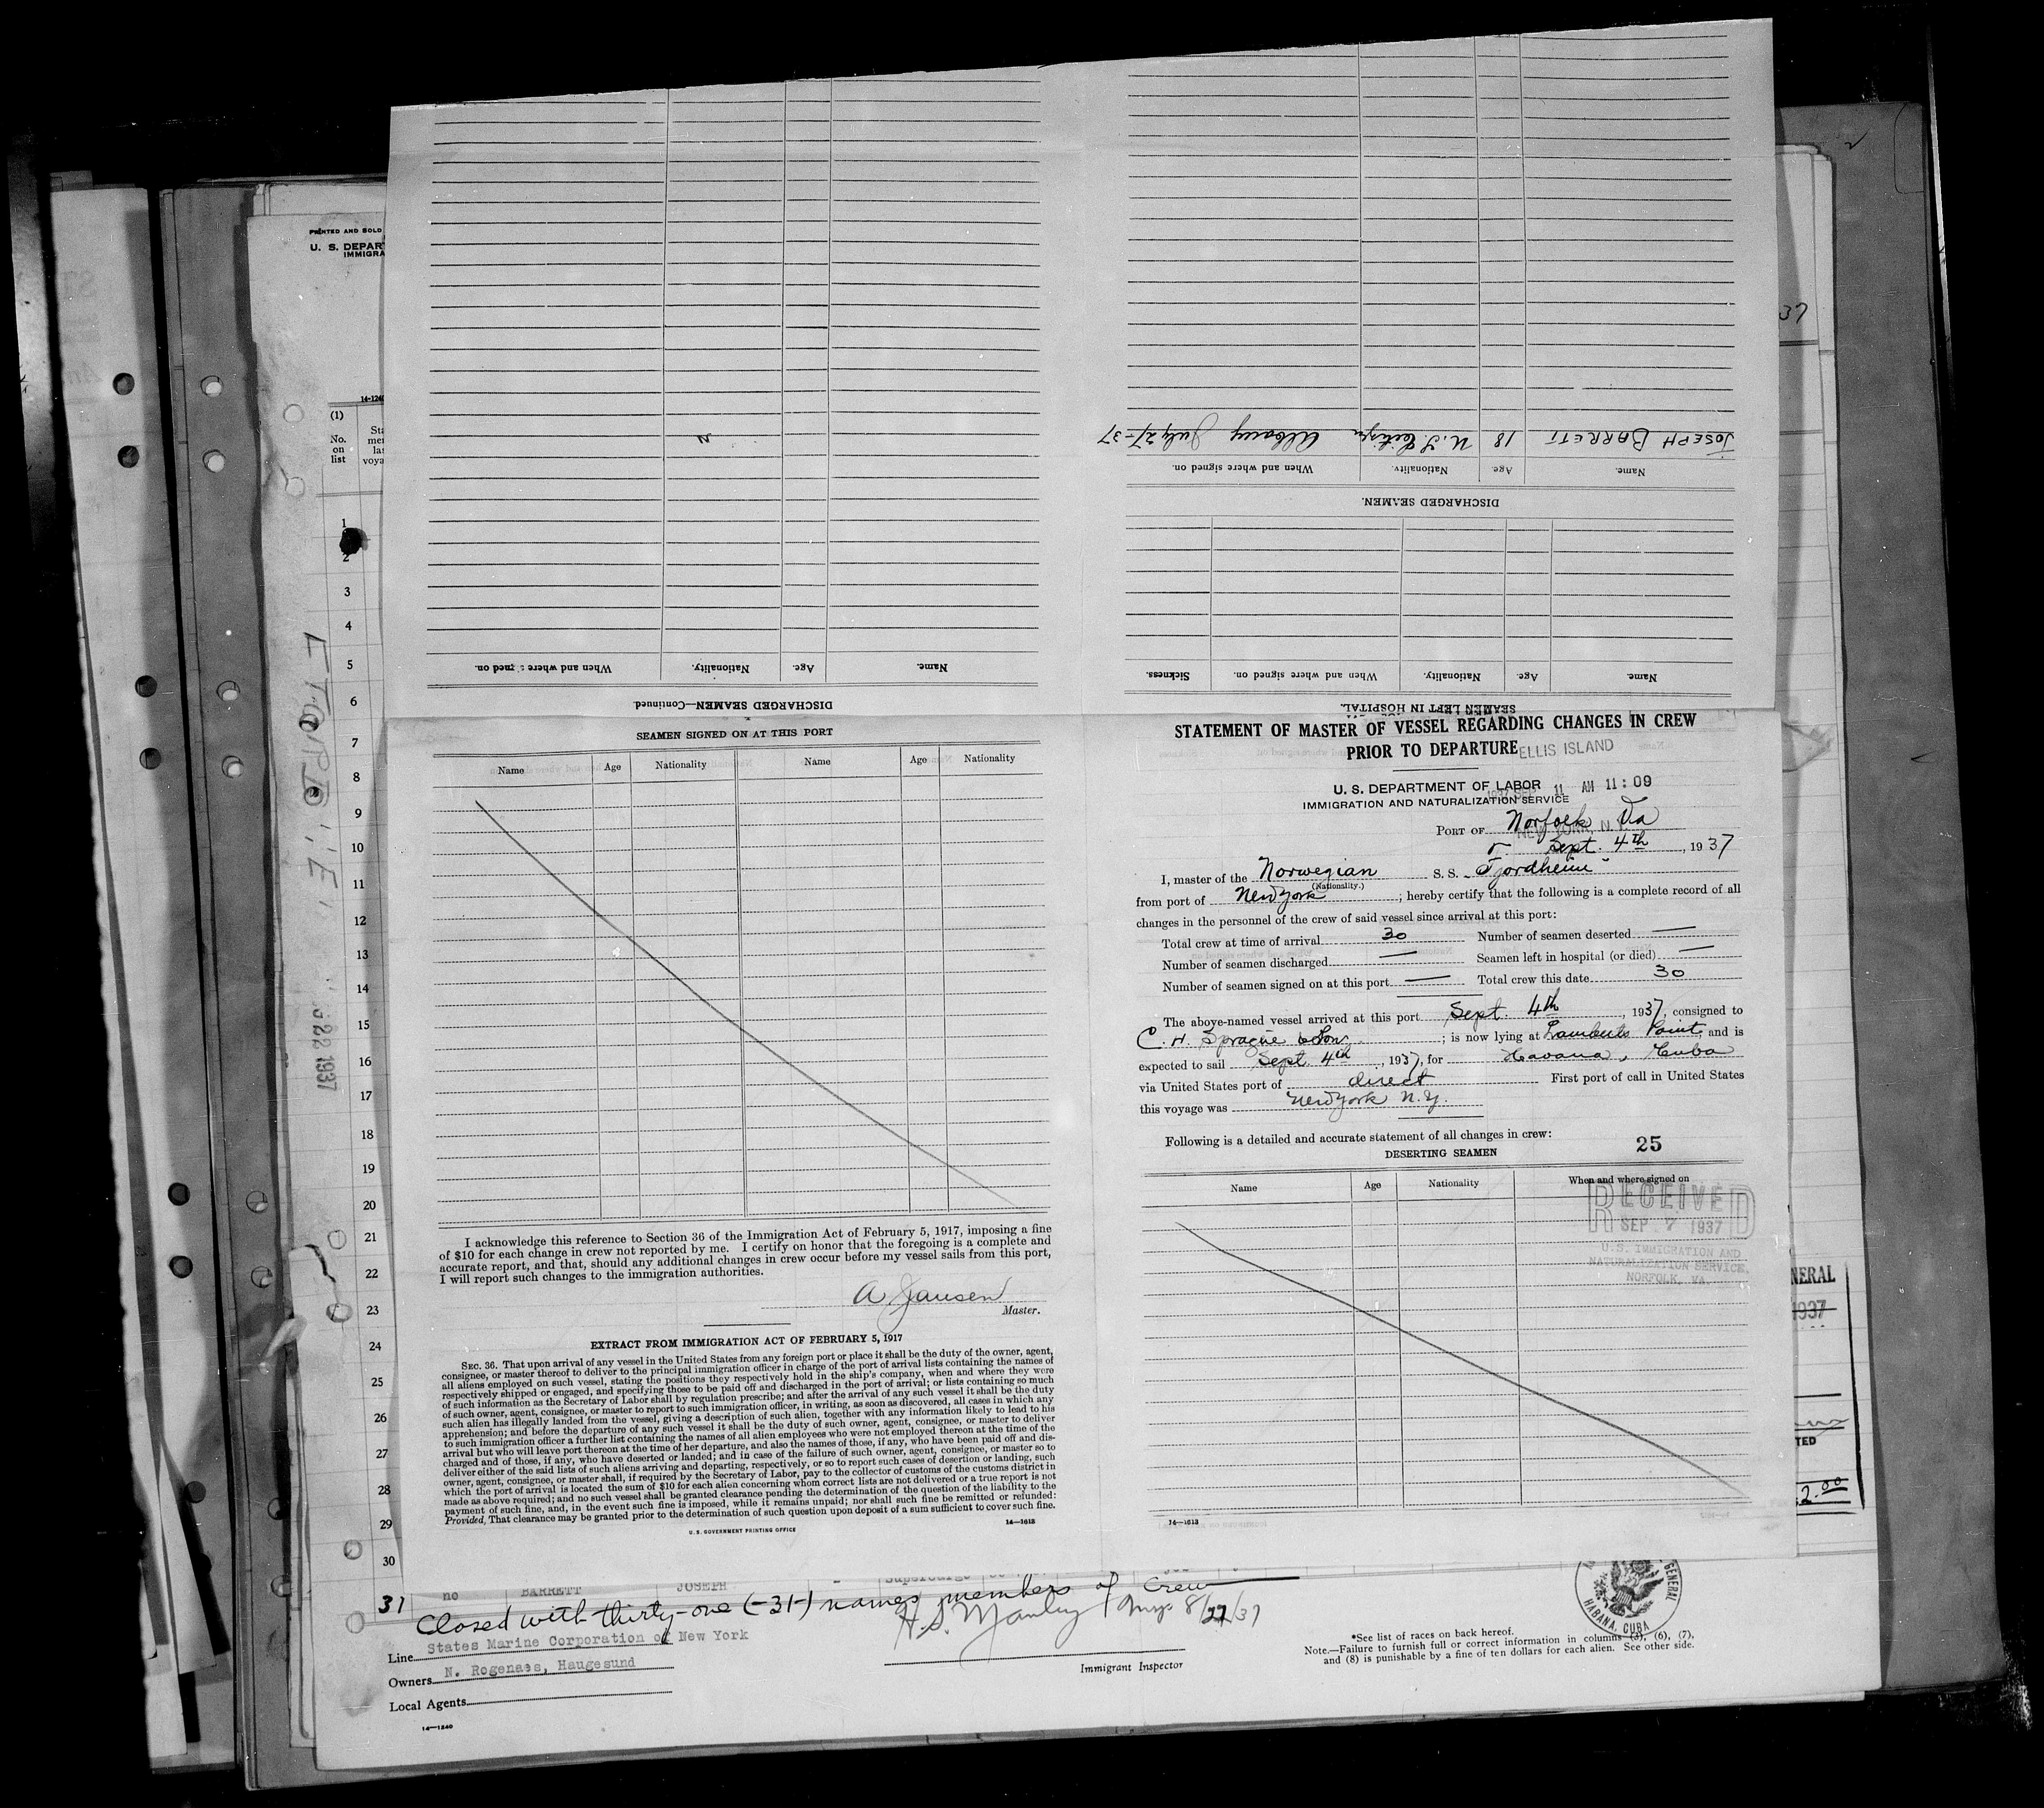 PRINTED AND SOLD
U. S. DEPAR
IMMIGRA
14-1240
(1)
No.
on
list
1
2
3
4
5
6
7
8
9
10
11
12
13
14
15
16
17
18
19
20
21
22
23
24
25
26
27
28
29
30
31
DISCHARGED SEAMEN—Continued.
Name.
Age.
Nationality.
When and where signed on.
N
SEAMEN LEFT IN HOSPITAL.
Name.
Age.
Nationality.
When and where signed on.
Sickness.
DISCHARGED SEAMEN.
Name.
Age.
Nationality.
When and where signed on.
JOSEPH BARRETT 18 U.S. Citizen Albany July 27-37
37
SEAMEN SIGNED ON AT THIS PORT
Name
Age
Nationality
Name
Age
Nationality
I acknowledge this reference to Section 36 of the Immigration Act of February 5, 1917, imposing a fine
of $10 for each change in crew not reported by me. I certify on honor that the foregoing is a complete and
accurate report, and that, should any additional changes in crew occur before my vessel sails from this port,
I will report such changes to the immigration authorities.
A Jansen
Master.
EXTRACT FROM IMMIGRATION ACT OF FEBRUARY 5, 1917
SEC. 36. That upon arrival of any vessel in the United States from any foreign port or place it shall be the duty of the owner, agent,
consignee, or master thereof to deliver to the principal immigration officer in charge of the port of arrival lists containing the names of
all aliens employed on such vessel, stating the positions they respectively hold in the ship's company, when and where they were
respectively shipped or engaged, and specifying those to be paid off and discharged in the port of arrival; or lists containing so much
of such information as the Secretary of Labor shall by regulation prescribe; and after the arrival of any such vessel it shall be the duty
of such owner, agent, consignee, or master to report to such immigration officer, in writing, as soon as discovered, all cases in which any
such alien has illegally landed from the vessel, giving a description of such alien, together with any information likely to lead to his
apprehension; and before the departure of any such vessel it shall be the duty of such owner, agent, consignee, or master to deliver
to such immigration officer a further list containing the names of all alien employees who were not employed thereon at the time of the
arrival but who will leave port thereon at the time of her departure, and also the names of those, if any, who have been paid off and dis-
charged and of those, if any, who have deserted or landed; and in case of the failure of such owner, agent, consignee, or master so to
deliver either of the said lists of such aliens arriving and departing, respectively, or so to report such cases of desertion or landing, such
owner, agent, consignee, or master shall, if required by the Secretary of Labor, pay to the collector of customs of the customs district in
which the port of arrival is located the sum of $10 for each alien concerning whom correct lists are not delivered or a true report is not
made as above required; and no such vessel shall be granted clearance pending the determination of the question of the liability to the
payment of such fine, and, in the event such fine is imposed, while it remains unpaid; nor shall such fine be remitted or refunded:
Provided, That clearance may be granted prior to the determination of such question upon deposit of a sum sufficient to cover such fine.
U. S. GOVERNMENT PRINTING OFFICE
14—1613
STATEMENT OF MASTER OF VESSEL REGARDING CHANGES IN CREW
PRIOR TO DEPARTURE
ELLIS ISLAND
U. S. DEPARTMENT OF LABOR
1937 SEP 11 AM 11:09
IMMIGRATION AND NATURALIZATION SERVICE
PORT OF Norfolk Va
NEW YORK, N.Y.
Sept. 4th, 1937
I, master of the Norwegian S. S. Fjordheim
(Nationality.)
from port of New York; hereby certify that the following is a complete record of all
changes in the personnel of the crew of said vessel since arrival at this port:
Total crew at time of arrival 30 Number of seamen deserted —
Number of seamen discharged — Seamen left in hospital (or died) —
Number of seamen signed on at this port — Total crew this date 30
The above-named vessel arrived at this port Sept. 4th, 1937, consigned to
C. H. Sprague & Son; is now lying at Lamberts Point, and is
expected to sail Sept. 4th, 1937, for Havana, Cuba
via United States port of direct First port of call in United States
this voyage was New York N.Y.
Following is a detailed and accurate statement of all changes in crew:
25
DESERTING SEAMEN
Name
Age
Nationality
When and where signed on
RECEIVED
SEP 7 1937
U.S. IMMIGRATION AND
NATURALIZATION SERVICE,
NORFOLK, VA.
14—1613
NERAL
1937
TED
2.00
no BARRETT JOSEPH - Supercargo
Closed with thirty-one (-31-) names members of Crew
H.S. Manley 8/27/37
Line States Marine Corporation of New York
Owners N. Rogenaes, Haugesund
Local Agents
14—1240
Immigrant Inspector
GENERAL
HABANA, CUBA
*See list of races on back hereof.
Note.—Failure to furnish full or correct information in columns (5), (6), (7),
and (8) is punishable by a fine of ten dollars for each alien. See other side.